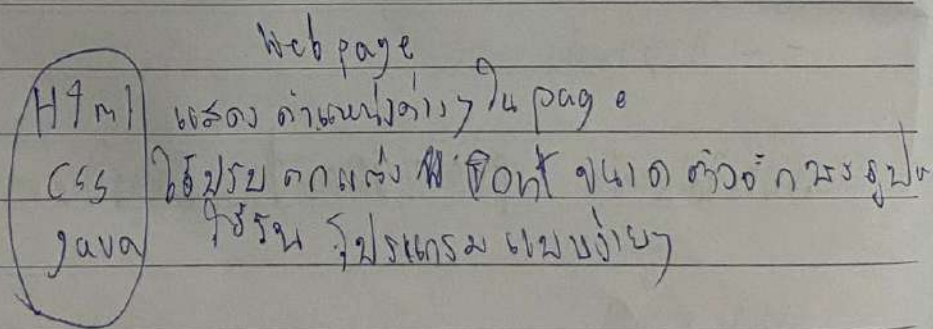 Web page
Html แสดง ตำแหน่งต่างๆ ใน page
CSS ใช้ปรับ ตกแต่ง ฟ้อนท์ ขนาด ตัวอักษร รูป
Java ใช้รัน โปรแกรม แบบง่ายๆ